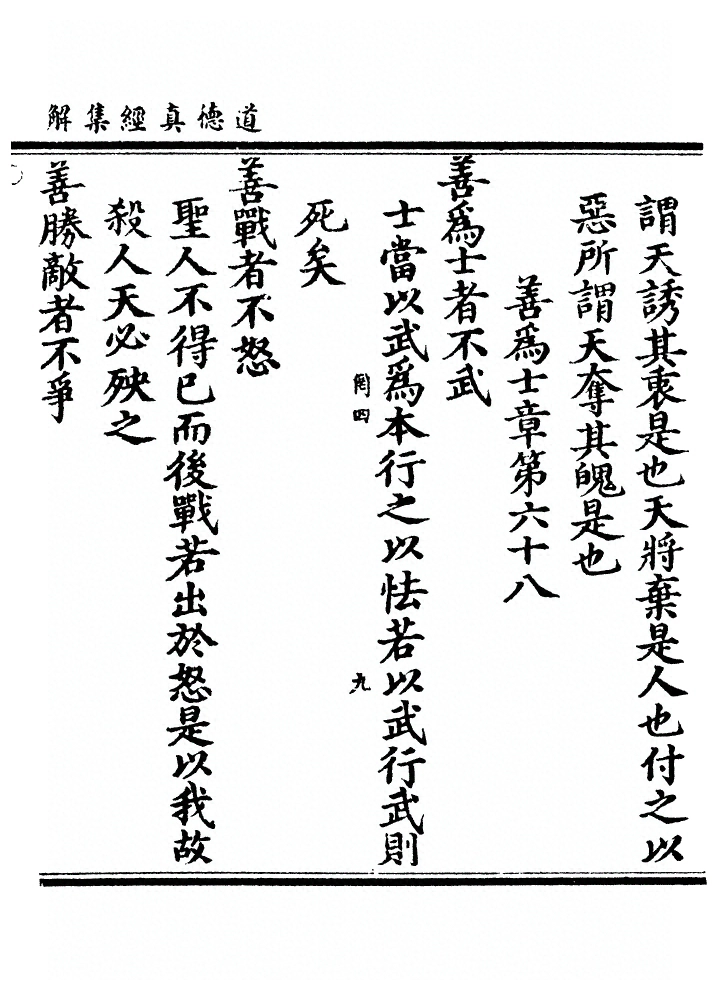 道德真經集解
謂天誘其衷是也天將棄是人也付之以
惡所謂天奪其魄是也
善爲士章第六十八
善爲士者不武
士當以武爲本行之以怯若以武行武則
罔四
九
死矣
善戰者不怒
聖人不得已而後戰若出於怒是以我故
殺人天必殃之
善勝敵者不爭